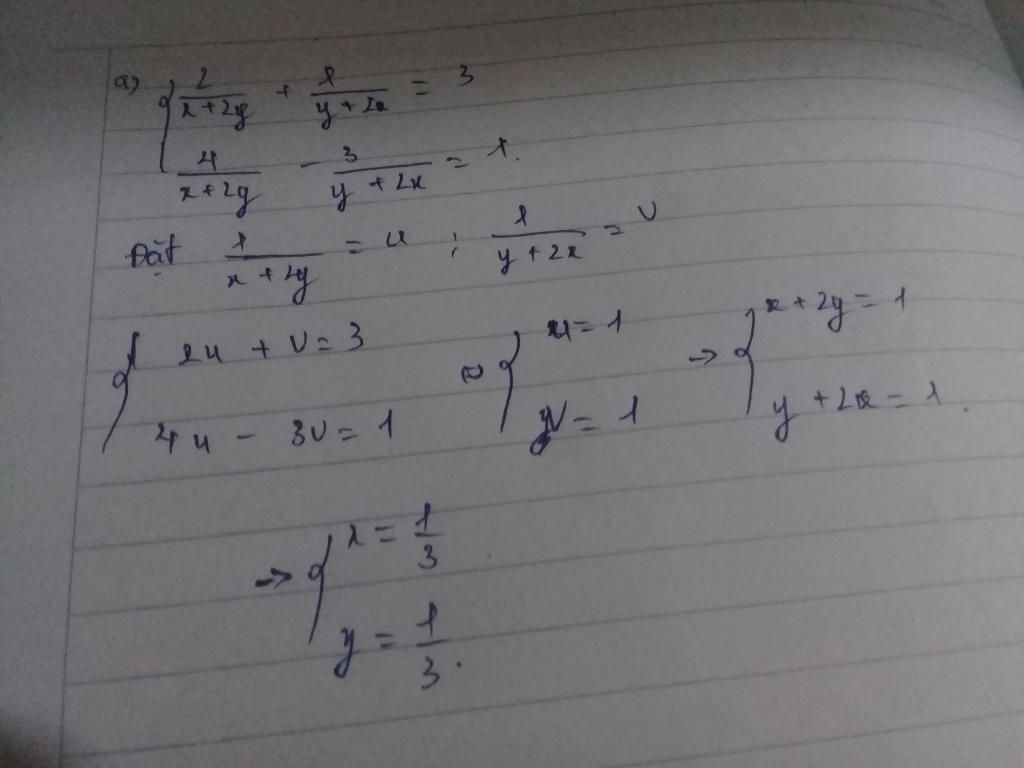 a) { 2/(x+2y) + 1/(y+2x) = 3
4/(x+2y) - 3/(y+2x) = 1.
Đặt 1/(x+2y) = u ; 1/(y+2x) = v
{ 2u + v = 3
4u - 3v = 1
≈ { u = 1
v = 1
→ { x + 2y = 1
y + 2x = 1.
→ { x = 1/3
y = 1/3.